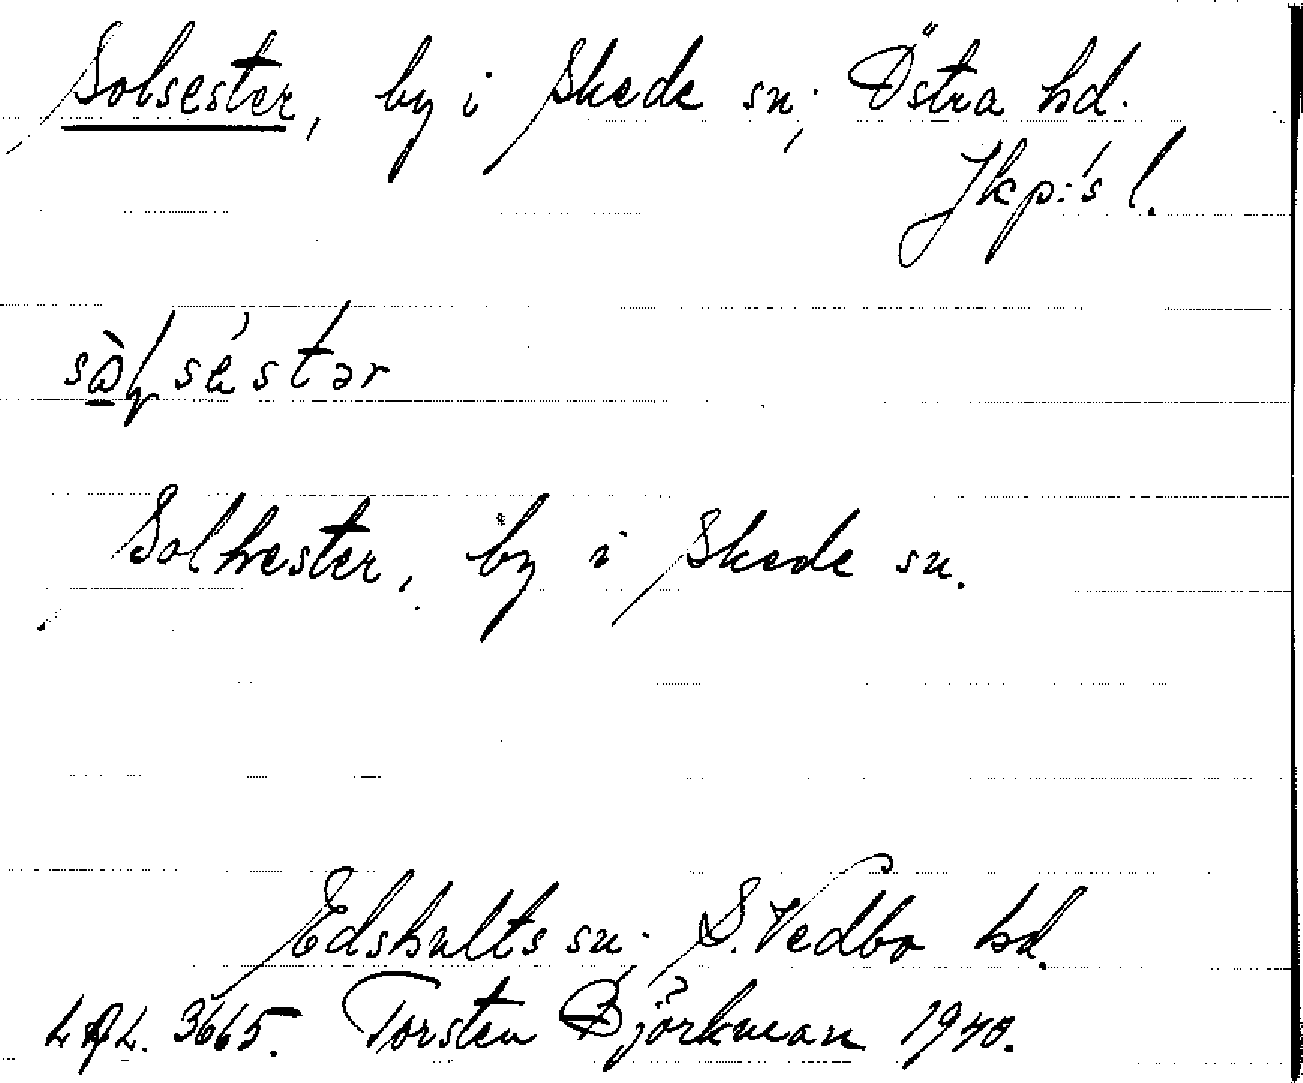 Solsester, by i Skede sn; Östra hd.
Jkp:s l.
sɷ̀ḷséstər
Solhester, by i Skede sn.
Edshults sn; S. Vedbo hd.
LAL. 3665. Torsten Björkman 1940.